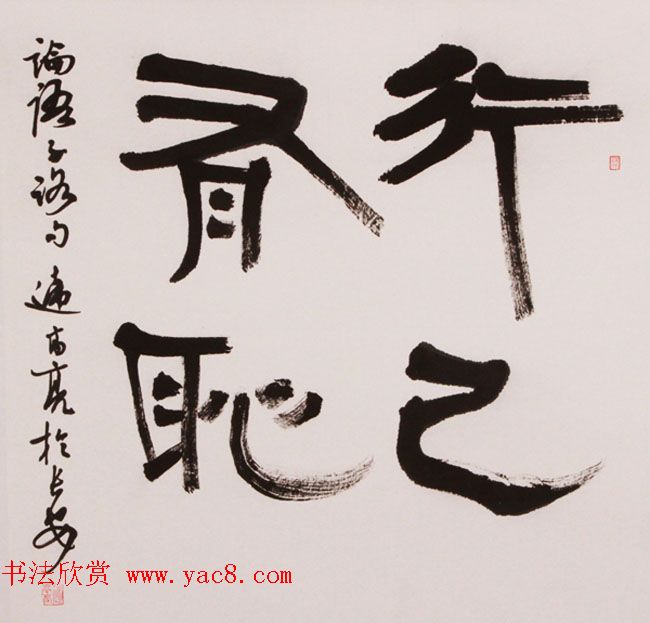 行己
有恥
論語子路句 遆高亮於長安
书法欣赏 www.yac8.com